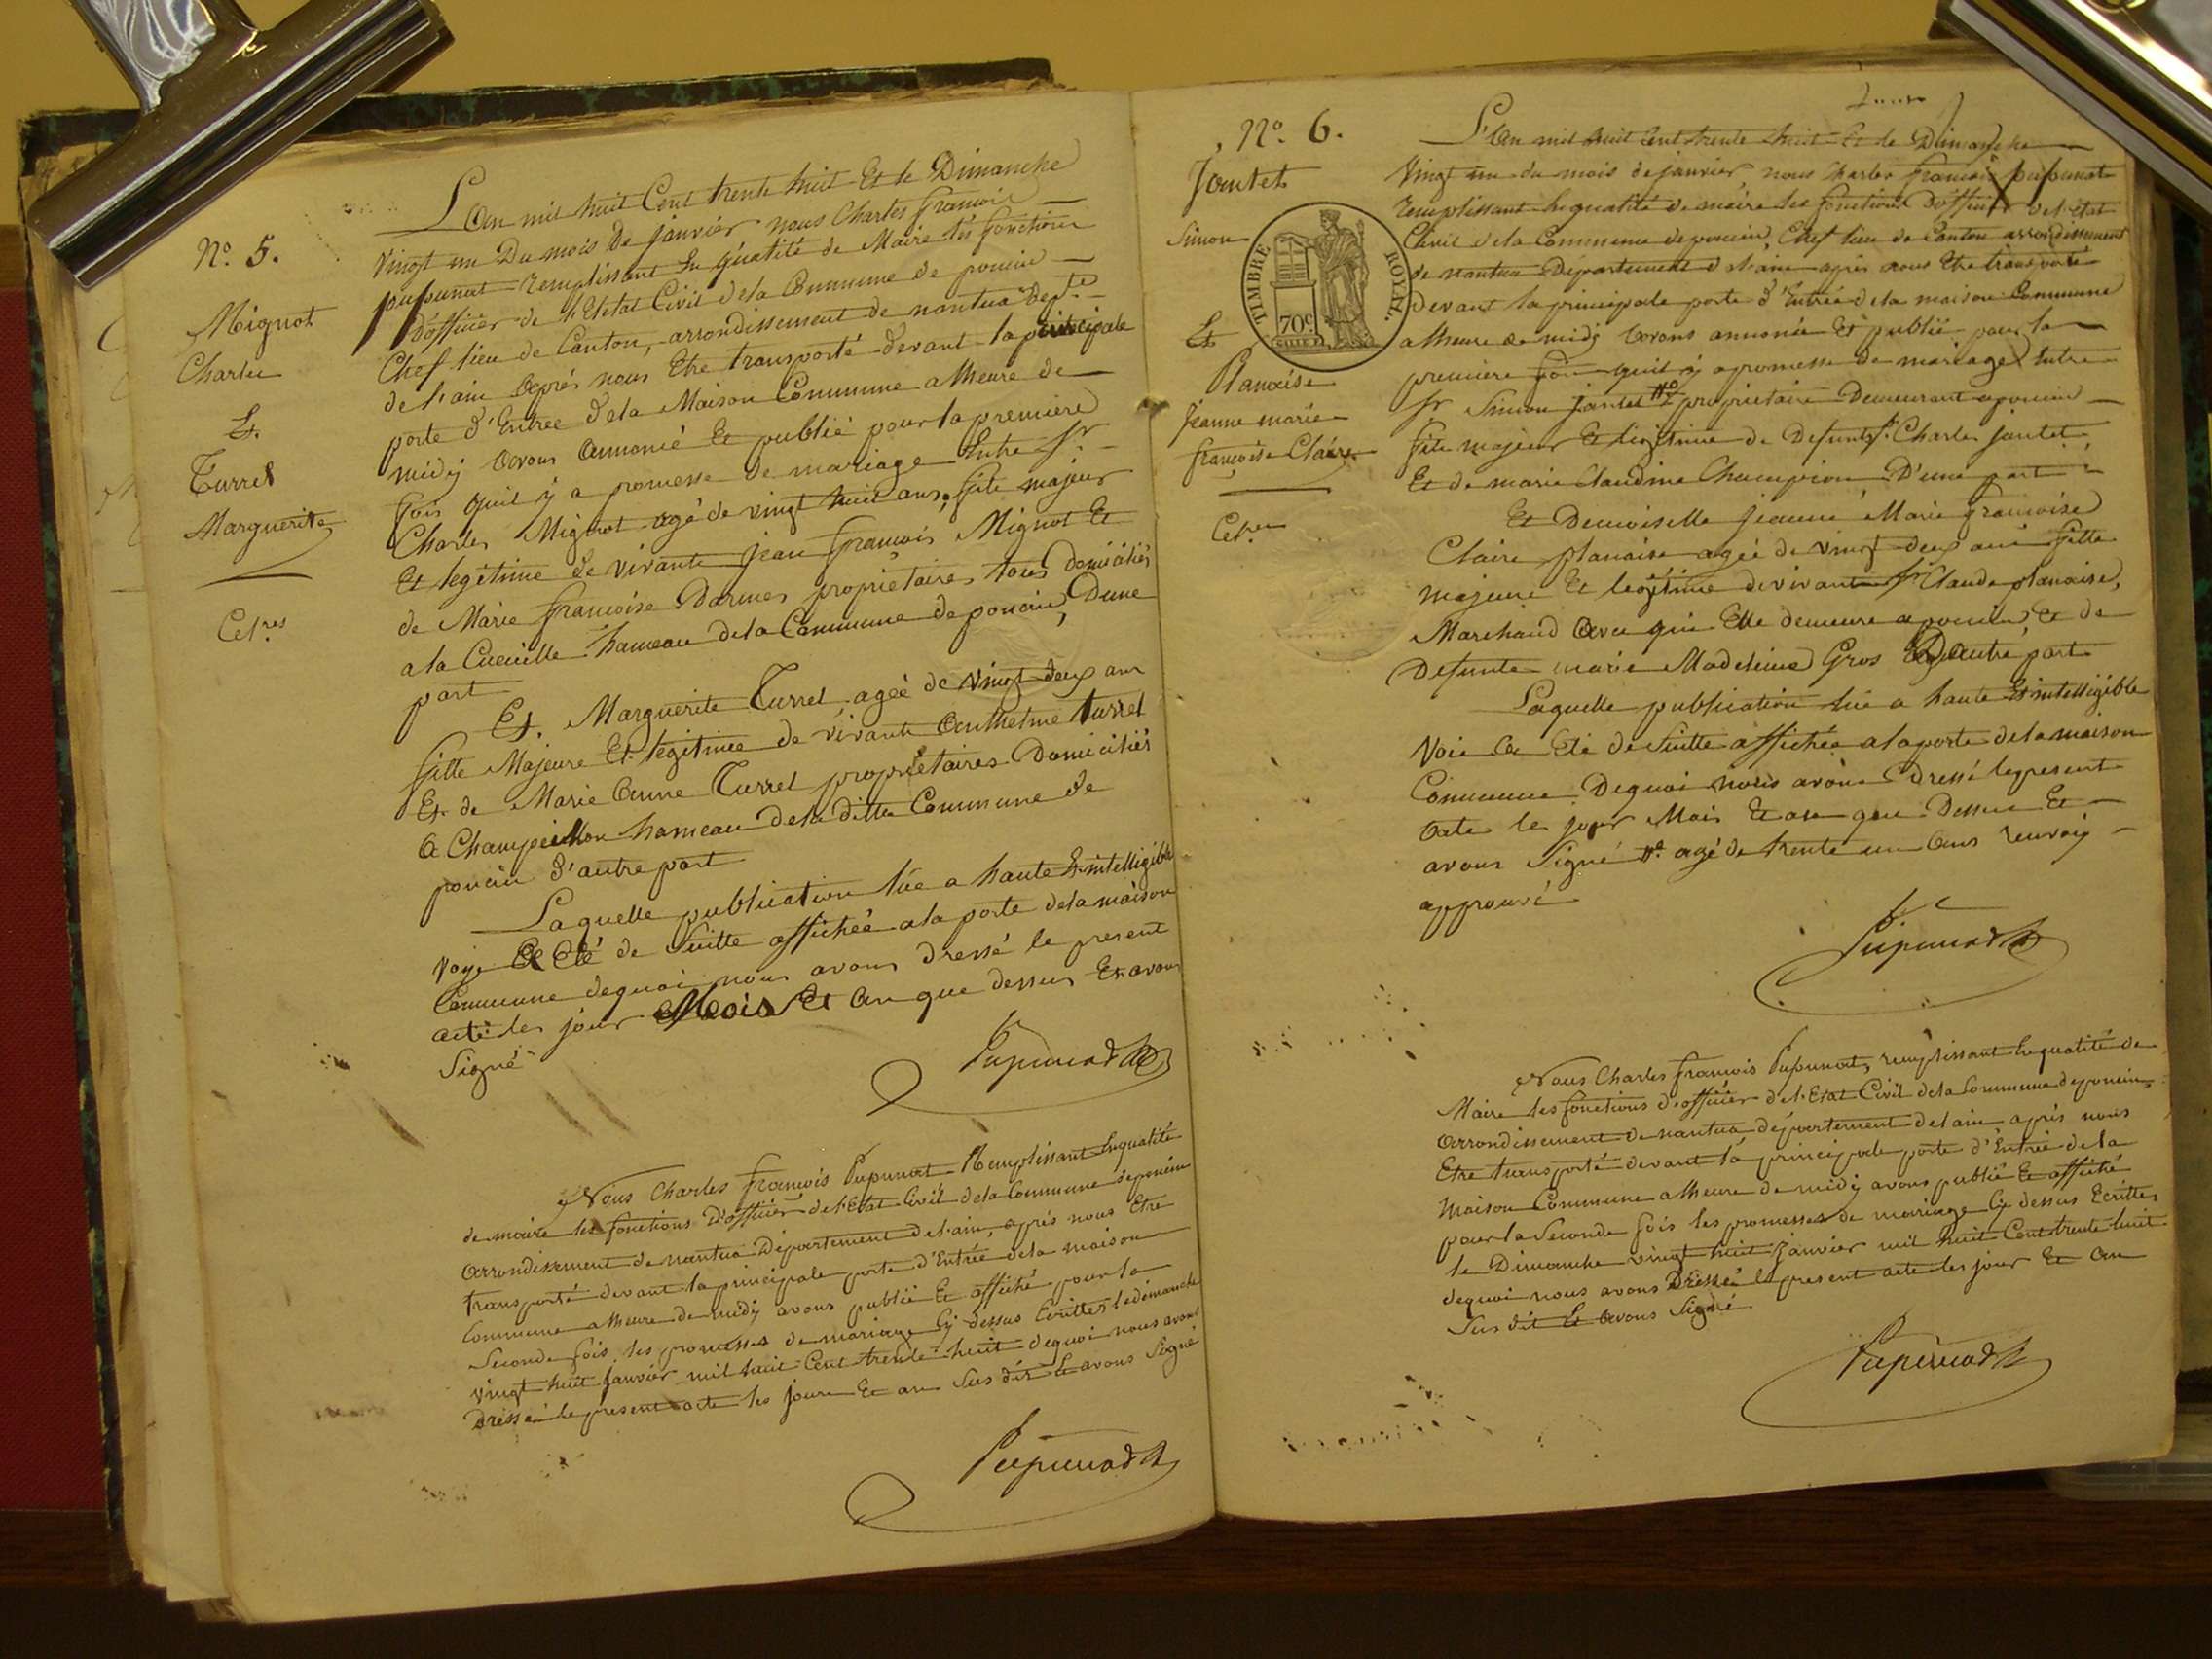 N.° 5.
Mignot
Charles
Et.
Turrel
Marguerite
Cel.res
L'an mil huit Cent trente huit Et le Dimanche
vingt un Du mois de janvier nous Charles francois
pupunat remplissant En qualité de Maire les fonctions
D'officier de l'Etat Civil dela Commune de poncin
Chef lieu de Canton, arrondissement de nantua dept.
de l'ain après nous Etre transporté devant la principale
porte d'Entrée dela Maison Commune a lheure de
midÿ avons annoncé Et publié pour la premiere
fois quil ÿ a promesse de mariage Entre Sr
Charles Mignot agé de vingt huit ans, fils majeur
Et legitime de vivants jean françois Mignot Et
de Marie françoise Darmes propriétaires tous domiciliés
a la Cueuille hameau dela Commune de poncin, Dune
part
Et. Marguerite Turrel agée de vingt deux ans
fille Majeure Et legitime de vivants anthelme turrel
Et de Marie anne Turrel propriétaires Domiciliés
a Champeillon hameau dela ditte Commune de
poncin d'autre part
Laquelle publication lue a haute Et intelligible
voye a Eté de suitte affichée a la porte dela maison
Commune dequoi nous avons dressé le present
acte les jour Mois Et an que dessus Et avons
Signé
Pupunat
Nous Charles françois Pupunat Remplissant En qualité
de maire les fonctions D'officier de l'Etat Civil dela Commune de poncin
arrondissement de nantua Département de l'ain, après nous Etre
transporté devant la principale porte d'Entrée dela maison
Commune a lheure de midÿ avons publié Et affiché pour la
Seconde fois les promesses de mariage Cy dessus Ecrittes le dimanche
vingt huit janvier mil huit Cent trente huit dequoi nous avons
Dressé le present acte les jour Et an Sus dit Et avons Signé
Pupunat
N.° 6.
Jantet
Simon
Et
Planaise
Jeanne marie
françoise Claire
TIMBRE ROYAL.
70c
L'an mil huit Cent trente huit Et le Dimanche
vingt un du mois de janvier nous Charles francois pupunat
remplissant En qualité de maire les fonctions D'officier de l'état
Civil dela Commune de poncin, Chef lieu de Canton arrondissement
de nantua Département d l'ain après nous Etre transporté
devant la principale porte d'Entrée dela maison Commune
a lheure de midÿ avons annoncé Et publié pour la
premiere fois quil ÿ a promesse de mariage Entre
Sr Simon jantet propriétaire Demeurant a poncin
fils majeur Et légitime de Defunts Sr Charles jantet
Et de marie Claudine Champion D'une part
Et Demoiselle jeanne Marie françoise
Claire planaise agée de vingt deux ans fille
majeure Et legitime de vivant Sr Claude planaise,
Marchand avec qui Elle demeure a poncin Et de
Defunte marie Madeleine Gros D'autre part
Laquelle publication lue a haute Et intelligible
Voie a Eté de Suitte affichée a la porte dela maison
Commune Dequoi nous avons Dressé le present
acte les jour Mois Et an que Dessus Et
avons Signé agé de trente un ans renvoÿ
approuvé
Pupunat
Nous Charles françois Pupunat, remplissant En qualité de
Maire les fonctions d'officier de l'Etat Civil dela Commune de poncin,
arrondissement de nantua département de l'ain après nous
Etre transporté devant la principale porte d'Entrée dela
Maison Commune a lheure de midÿ avons publié Et affiché
pour la Seconde fois les promesses de mariage Cy dessus Ecrittes
le Dimanche vingt huit janvier mil huit Cent trente huit
dequoi nous avons Dressé le present acte les jour Et an
Sus dit Et avons Signé
Pupunat